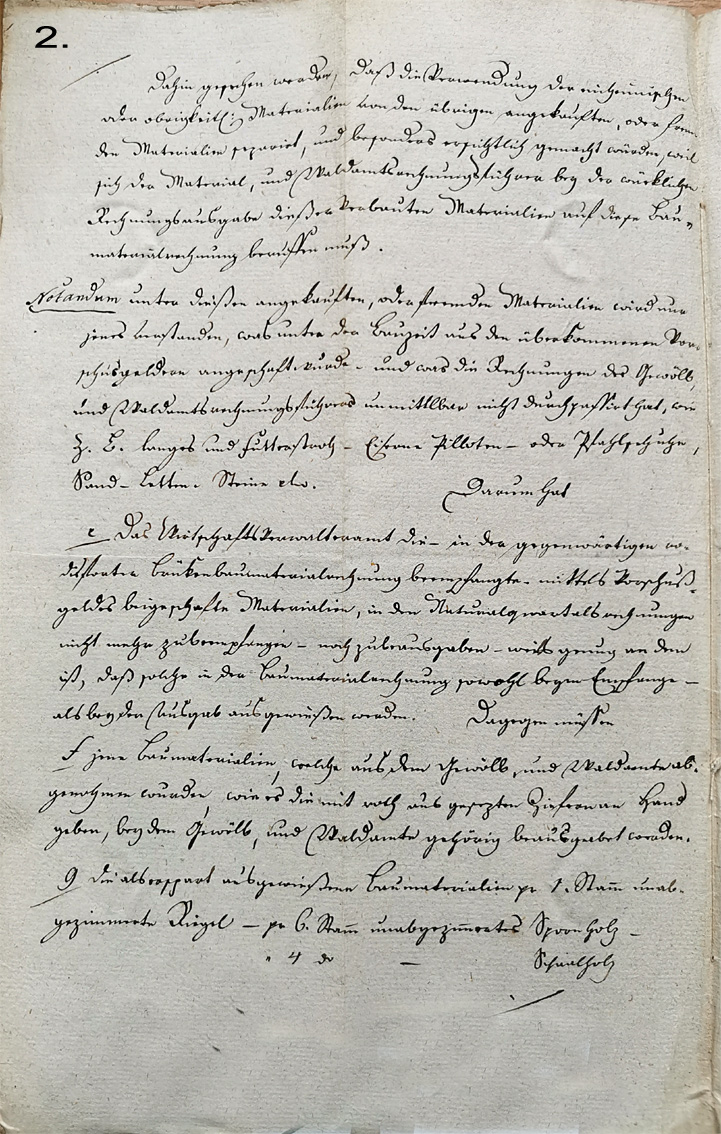 2.
Dahin gesehen werden, daß die Verwendung der eichenmischen
oder obrigkeitl: Materialien von den übrigen angekauften, oder frem
den Materialien separiret, und besonders ersichtlich gemacht würden, weil
sich der Material, und Waldamtsrechnungsführer bey der würklichen
Rechnungsausgabe dießer verbauten Materialien auf diese Bau„
materialrechnung beruffen muß.
Notandum unter dießen angekauften, oder fremden Materialien wird nur
jenes verstanden, was unter der Bauzeit aus den überkommenen Vor„
schußgeldern angeschaft wurde – und was die Rechnungen des Gewölb,
und Waldamtsrechnungsführers unmittlbar nicht durchpassirt hat, wie
z. B. langes und Futterstroh – Eiserne Pilloten – oder Pfahlschuhe,
Sand – Letten – Steine etc.
Darum hat
e Das Wirtschaftsverwalteramt die – in der gegenwärtigen
Brükenbaumaterialrechnung beempfangte – mittels Vorschuß„
geldes beigeschafte Materialien, in den Naturalquartalsrechnungen
nicht mehr zu beempfangen – noch zu beausgaben – weills genug an dem
ist, daß solche in der Baumaterialrechnung sowohl beym Empfange –
als bey der Ausgab ausgewießen werden.
Dagegen müssen
f jene Baumaterialien, welche aus dem Gewölb, und Waldamte ab„
genohmen wurden, wie es die mit roth aus gesezten Ziefern an Hand
geben, bey dem Gewölb, und Waldamte gehörig beausgaabet werden.
g die als ausgewießene Baumaterialien pr 1. Stam̄ unab„
gezimmerte Riegel – pr 6. Stam̄ unabgezim̄ertes Spornholz –
" 4 do – Schaalholz